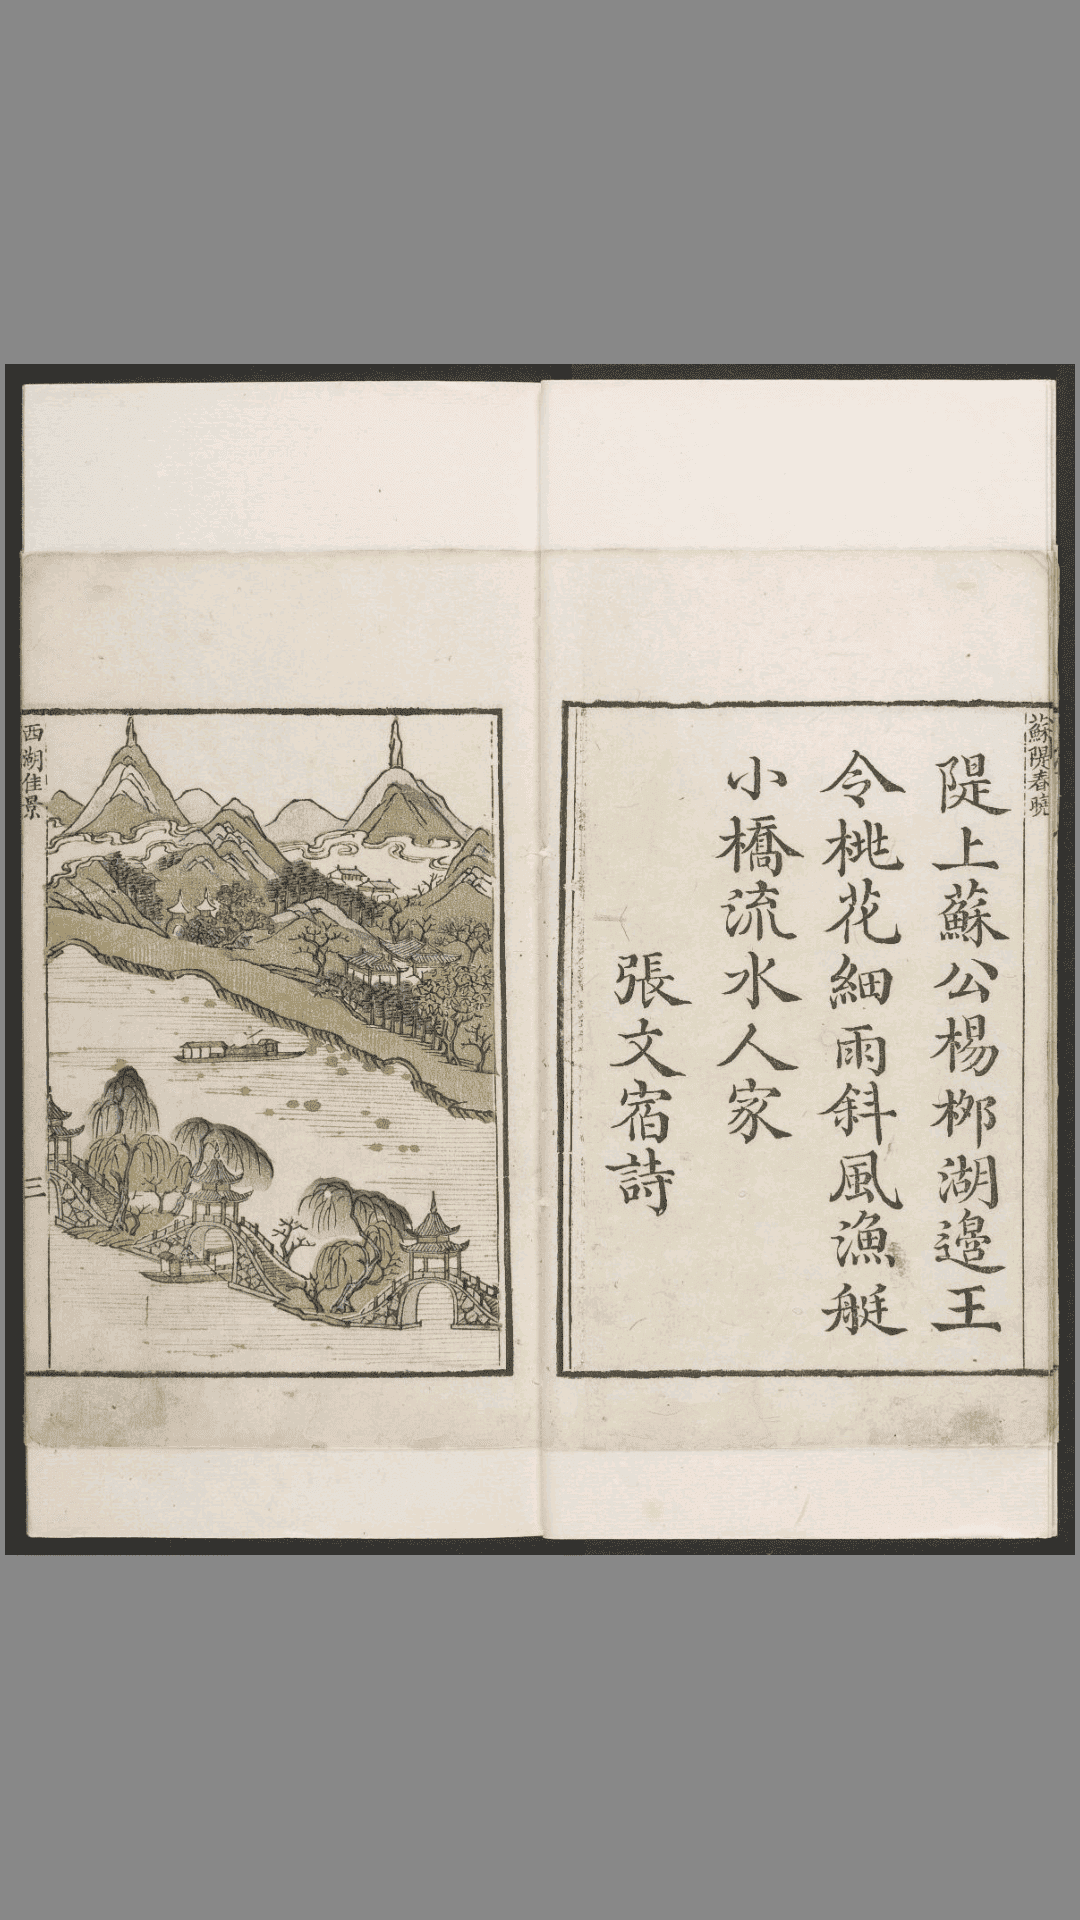 蘇隄春曉
隄上蘇公楊桞湖邉王
令桃花細雨斜風漁艇
小橋流水人家
張文宿詩
西湖佳景
三